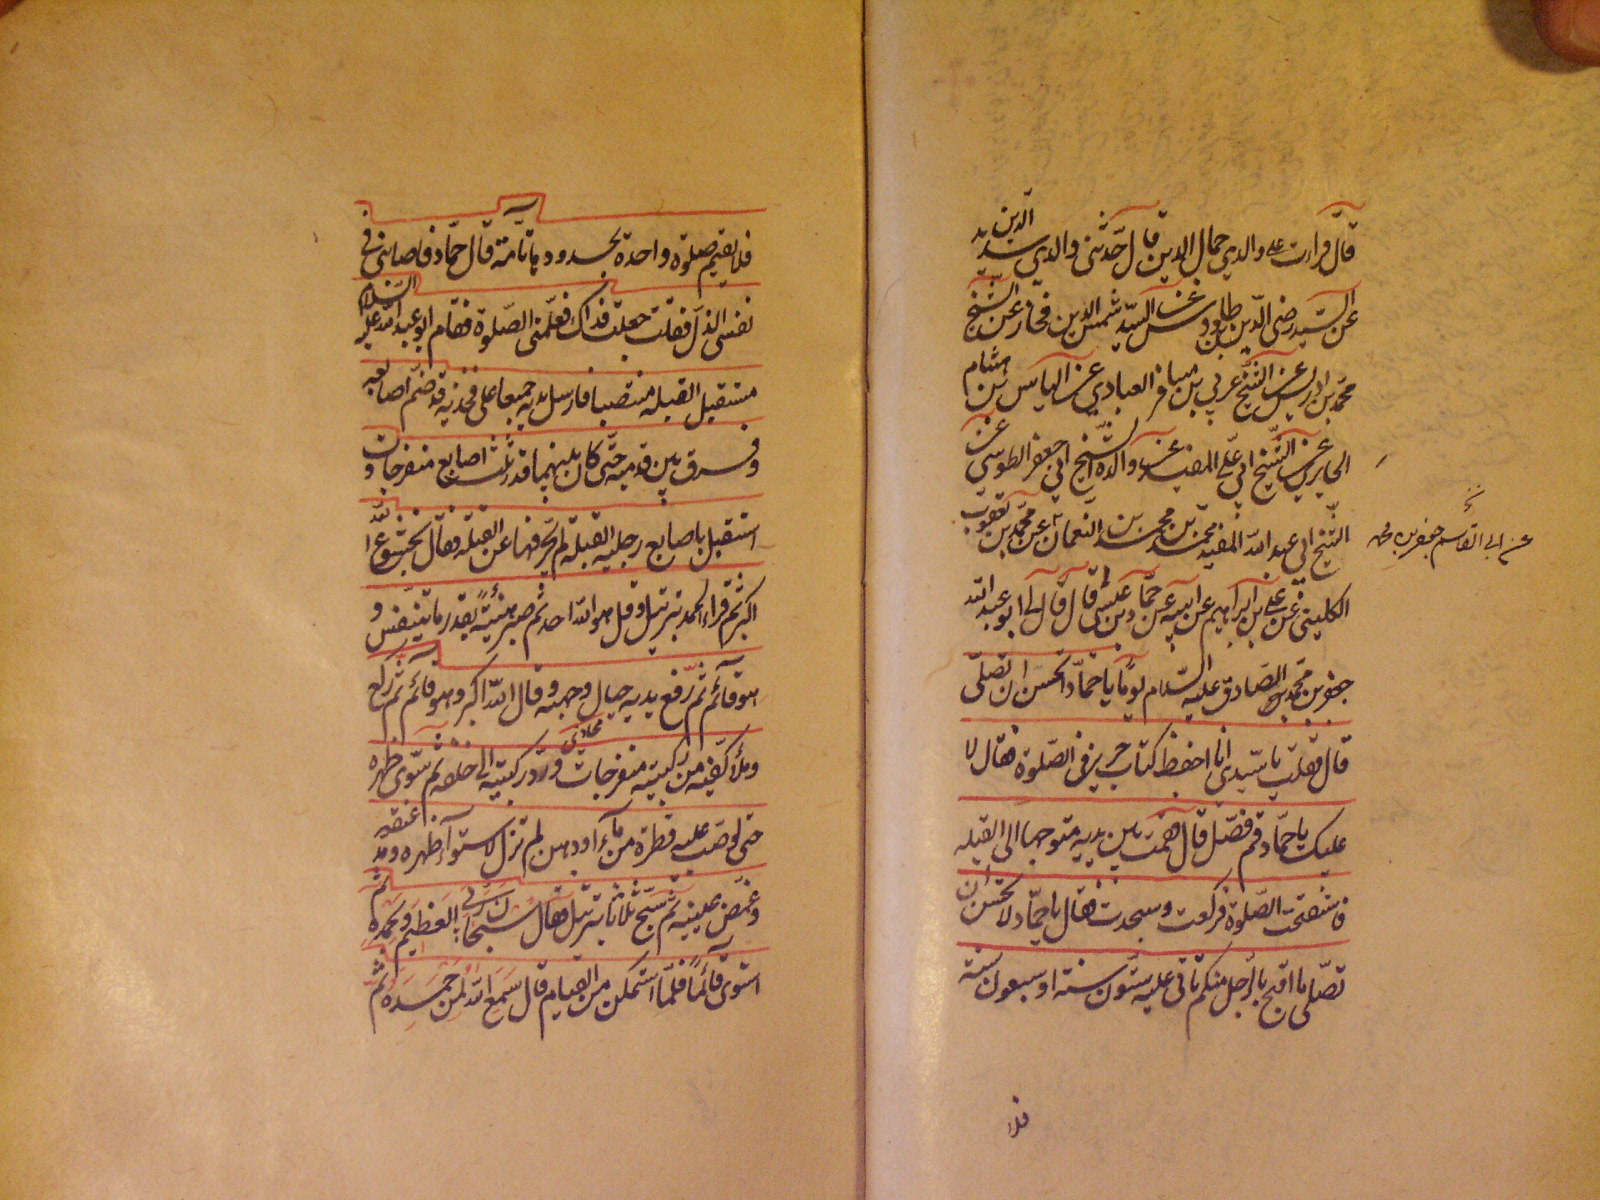 قال قرات على والدي جمال الدين قال حدثنى والدي سديد الدين
عن السيد رضى الدين بن طاوود عن السيد شمس الدين فخار عن الشيخ
محمد بن ادريس عن الشيخ عربي بن مسافر العبادي عن الياس بن هشام
الحايري عن الشيخ ابي على المفيد عن والده الشيخ ابي جعفر الطوسي عن
الشيخ ابي عبد الله المفيد محمد بن محمد بن النعمان عن محمد بن يعقوب
عن ابي القاسم جعفر بن محمد
الكلينى عن على بن ابراهيم عن ابيه عن حماد بن عيسى قال قال لى ابو عبد الله
جعفر بن محمد الصادق عليه السلام يوما يا حماد تحسن ان تصلى
قال فقلت يا سيدى انا احفظ كتاب حريز في الصلوة فقال لا
عليك يا حماد قم فصل قال فقمت بين يديه متوجها الى القبله
فاستفتحت الصلوة فركعت وسجدت فقال يا حماد لا تحسن ان
تصلى ما اقبح بالرجل منكم ياتى عليه ستون سنة او سبعون سنة
فلا
فلا يقيم صلوة واحدة بحدودها تامة قال حماد فاصابنى في
نفسى الذل فقلت جعلت فداك فعلمنى الصلوة فقام ابو عبد الله عليه السلام
مستقبل القبله منتصبا فارسل يديه جميعا على فخذيه قد ضم اصابعه
وفرق بين قدميه حتى كان بينهما قدر ثلث اصابع منفرجات و
استقبل باصابع رجليه القبلة لم يحرفهما عن القبلة فقال بخشوع الله
اكبر ثم قراء الحمد بترتيل وقل هو الله احد ثم صبر هنيئة بقدر ما يتنفس و
هو قائم ثم رفع يديه حيال وجهه وقال الله اكبر وهو قائم ثم ركع
وملأ كفيه من ركبتيه منفرجات ورد ركبتيه الى خلفه ثم سوى ظهره
حتى لو صب عليه قطرة من ماء او دهن لم تزل لاستوآء ظهره ومد عنقه
وغمض عينيه ثم سبح ثلاثا بترتيل فقال سبحان ربى العظيم وبحمده ثم
استوى قائما فلما استمكن من القيام قال سمع الله لمن حمده ثم